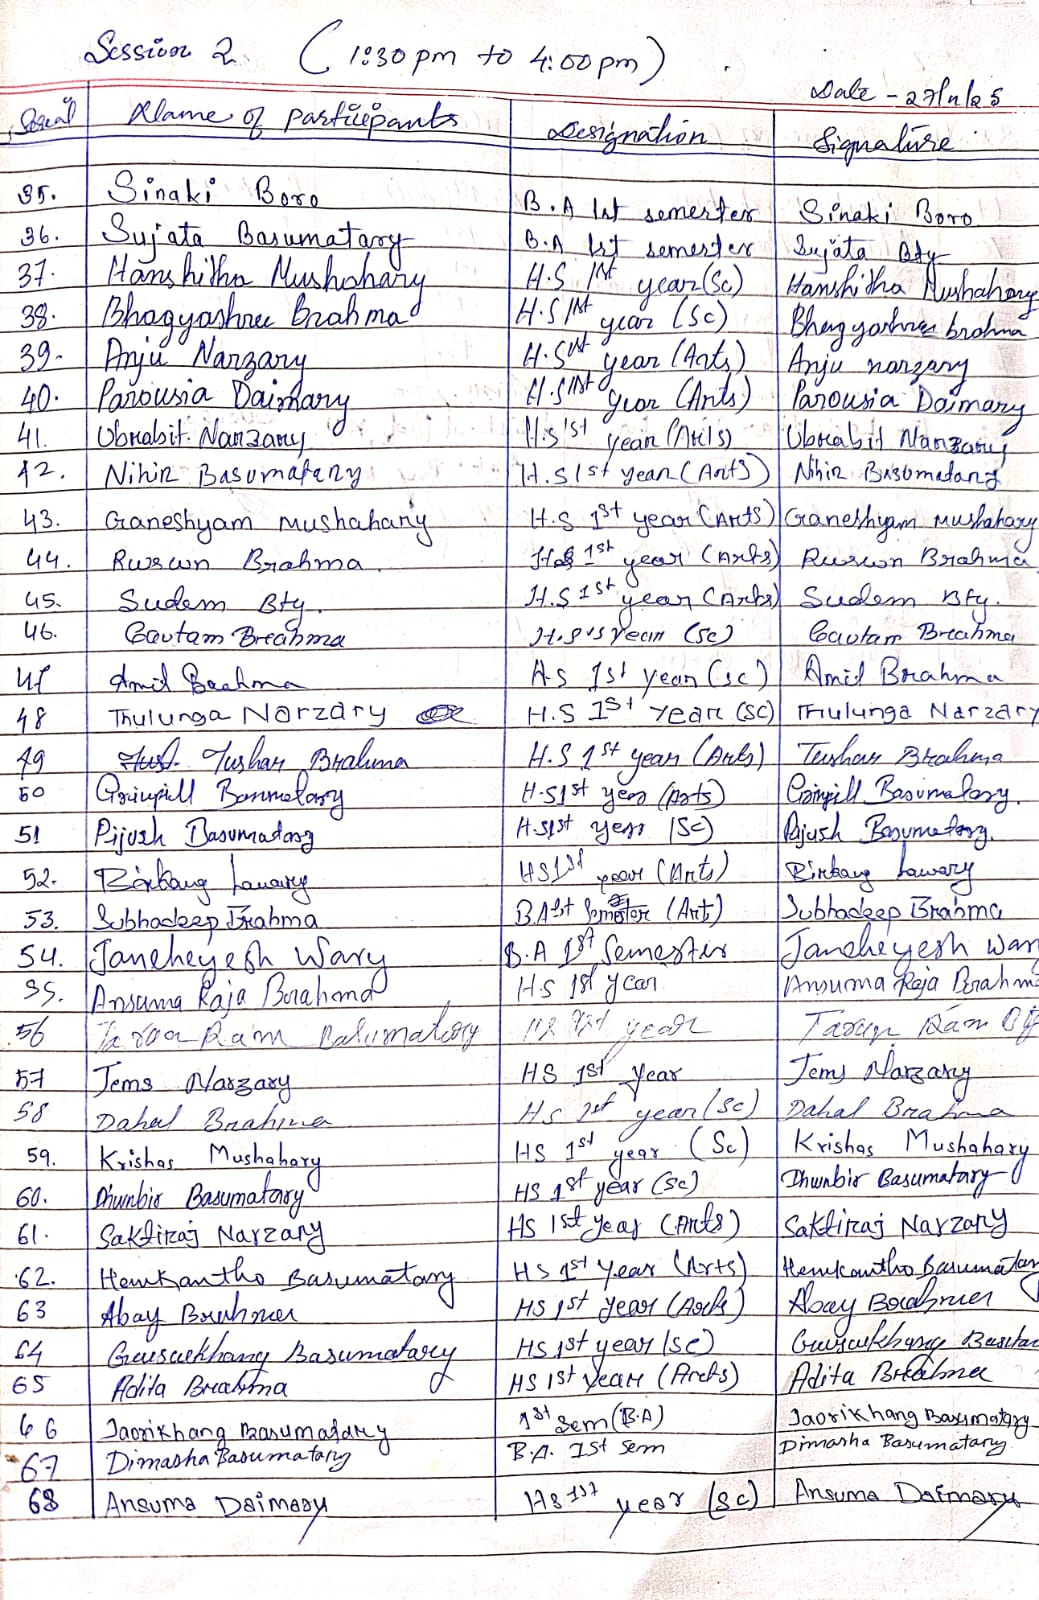 Session 2 (1:30 pm to 4:00 pm)
Date - 27/11/25
Serial Name of participants Designation Signature
35. Sinaki Boro B.A 1st semester Sinaki Boro
36. Sujata Basumatary B.A 1st semester Sujata Bty
37. Hanshitha Mushahary H.S 1st year (Sc) Hanshitha Mushahary
38. Bhagyashree Brahma H.S 1st year (Sc) Bhagyashree brahma
39. Anju Narzary H.S 1st year (Arts) Anju narzary
40. Parousia Daimary H.S 1st year (Arts) Parousia Daimary
41. Ubrabit Narzary H.S 1st year (Arts) Ubrabit Narzary
42. Nihir Basumatary H.S 1st year (Arts) Nihir Basumatary
43. Ganeshyam Mushahary H.S 1st year (Arts) Ganeshyam Mushahary
44. Rwswn Brahma. H.S 1st year (Arts) Rwswn Brahma
45. Sudem Bty. H.S 1st year (Arts) Sudem Bty.
46. Gautam Brahma H.S 1s year (Sc) Gautam Brahma
47 Amit Brahma H.S 1st year (Sc) Amit Brahma
48 Thulunga Narzary H.S 1st year (SC) Thulunga Narzary
49 Tushar Brahma H.S 1st year (Arts) Tushar Brahma
50 H.S 1st year (Arts) Basumatary.
51 Pijush Basumatary H.S 1st year (Sc) Pijush Basumatary.
52. Birkang Lawary HS 1st year (Arts) Birkang Lawary
53. Subhadeep Brahma B.A 1st Semester (Art) Subhadeep Brahma
54. Janeheyesh Wary B.A 1st Semester Janeheyesh Wary
55. Ansuma Raja Brahma H.S 1st year Ansuma Raja Brahma
56 Ram Basumatary 1st year Ram
57 Jems Narzary HS 1st Year Jems Narzary
58 Dahal Brahma HS 1st year (Sc) Dahal Brahma
59. Krishas Mushahary HS 1st year (Sc) Krishas Mushahary
60. Dhunbir Basumatary HS 1st year (Sc) Dhunbir Basumatary
61. Saktiraj Narzary HS 1st year (Arts) Saktiraj Narzary
62. Hemkantho Basumatary HS 1st Year (Arts) Hemkantho Basumatary
63 Abay Brahma HS 1st year (Arts) Abay Brahma
64 Gwswkhang Basumatary HS 1st year (Sc) Gwswkhang
65 Adita Brahma HS 1st Year (Arts) Adita Brahma
66 Jaorikhang Basumatary 1st Sem (B.A) Jaorikhang Basumatary
67 Dimasha Basumatary B.A. 1st Sem Dimasha Basumatary
68 Ansuma Daimary HS 1st year (Sc) Ansuma Daimary